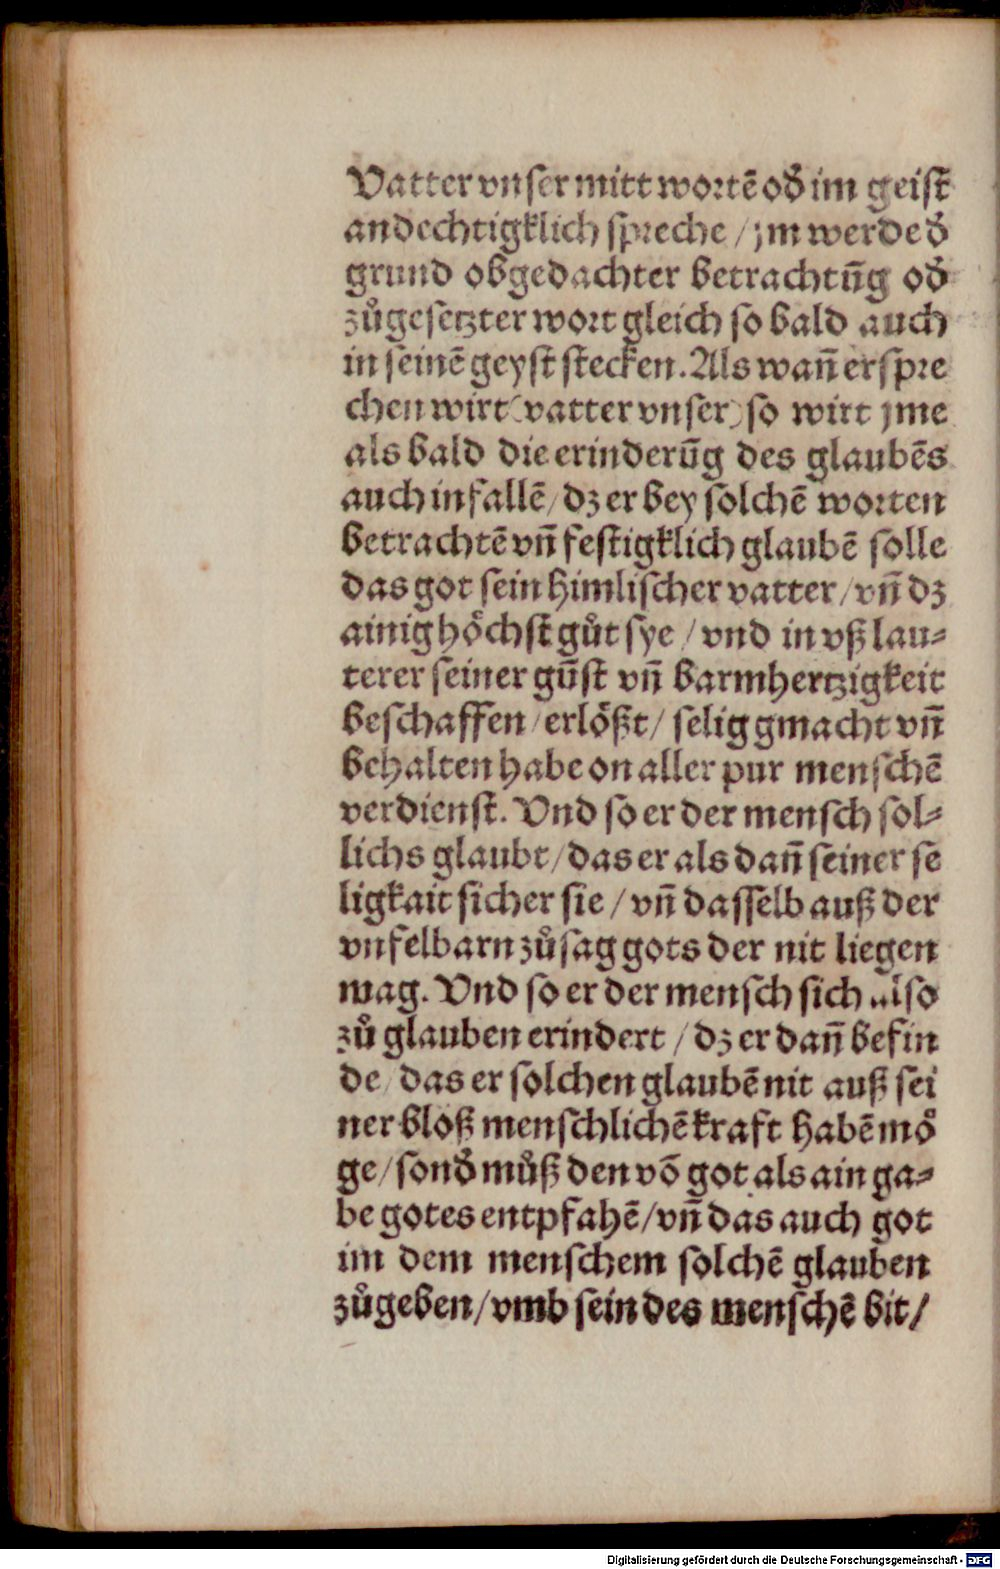 Vatter vnser mitt wortē od̄ im geist
andechtigklich spreche / jm werde d̄
grund obgedachter betrachtūg od̄
zůgesetzter wort gleich so bald auch
in seinē geyst stecken. Als wañ er spre
chen wirt (vatter vnser) so wirt jme
als bald die erinderūg des glaubēs
auch infallē / dz er bey solchē worten
betrachtē vñ festigklich glaubē solle
das got sein himlischer vatter / vñ dz
ainig höchst gůt sye / vnd in vß lau⸗
terer seiner gūst vñ barmhertzigkeit
beschaffen / erlößt / selig gmacht vñ
behalten habe on aller pur menschē
verdienst. Vnd so er der mensch sol⸗
lichs glaubt / das er als dañ seiner se
ligkait sicher sie / vñ dasselb auß der
vnfelbarn zůsag gots der nit liegen
mag. Vnd so er der mensch sich also
zů glauben erindert / dz er dañ befin
de / das er solchen glaubē nit auß sei
ner bloß menschlichē kraft habē mö
ge / sond̄ můß den vō got als ain ga⸗
be gotes entpfahē / vñ das auch got
im dem menschem solchē glauben
zůgeben / vmb sein des menschē bit /
Digitalisierung gefördert durch die Deutsche Forschungsgemeinschaft - DFG